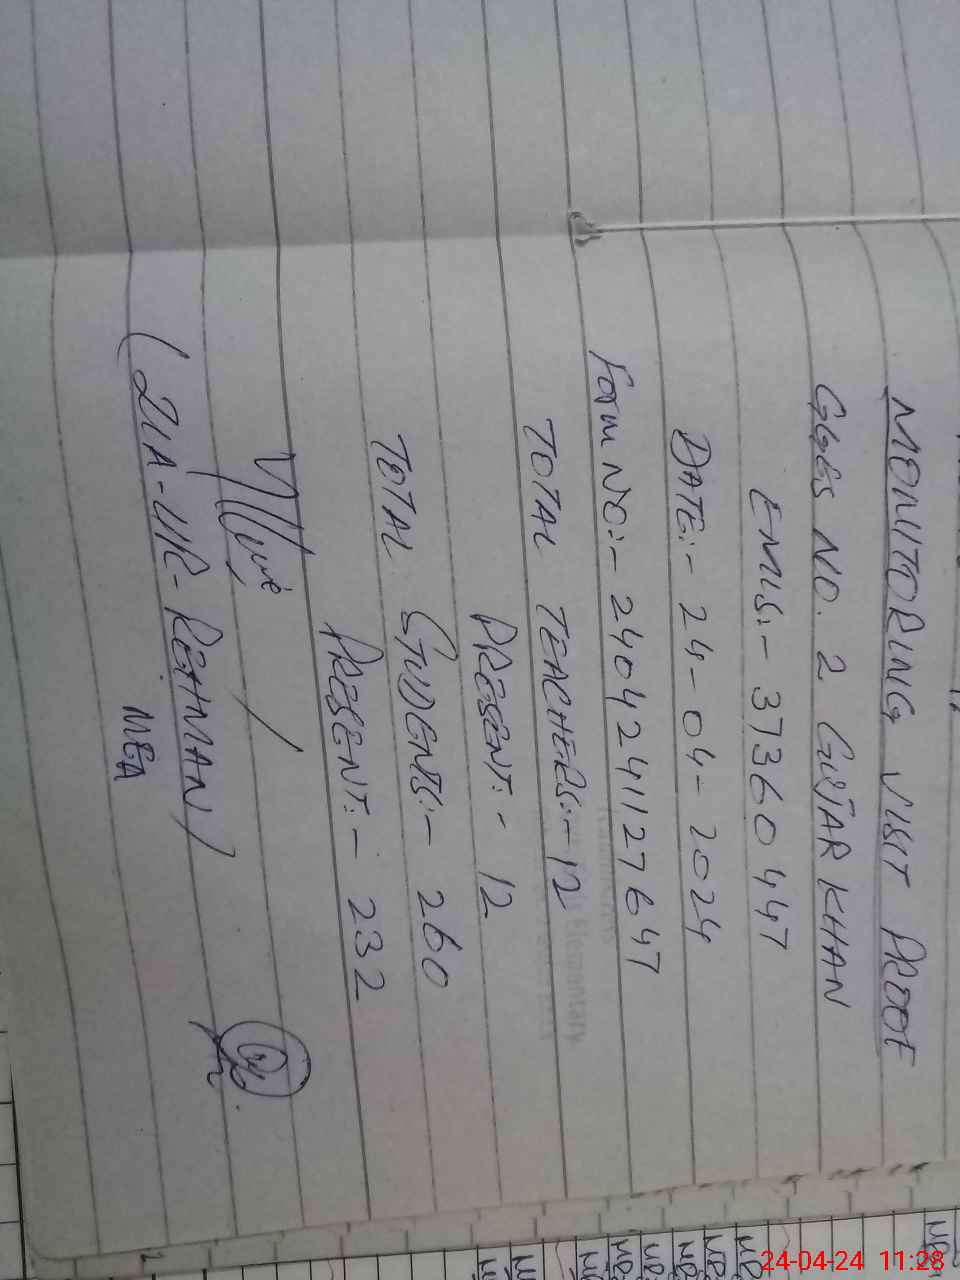 MONITORING VISIT PROOF
GGES NO. 2 GUJAR KHAN
EMIS:- 37360447
DATE:- 24-04-2024
Form NO:- 24042411127647
TOTAL TEACHERS:- 12
PRESENT:- 12
TOTAL STUDENTS:- 260
PRESENT:- 232
(ZIA-UR-REHMAN)
MEA
24-04-24 11:28